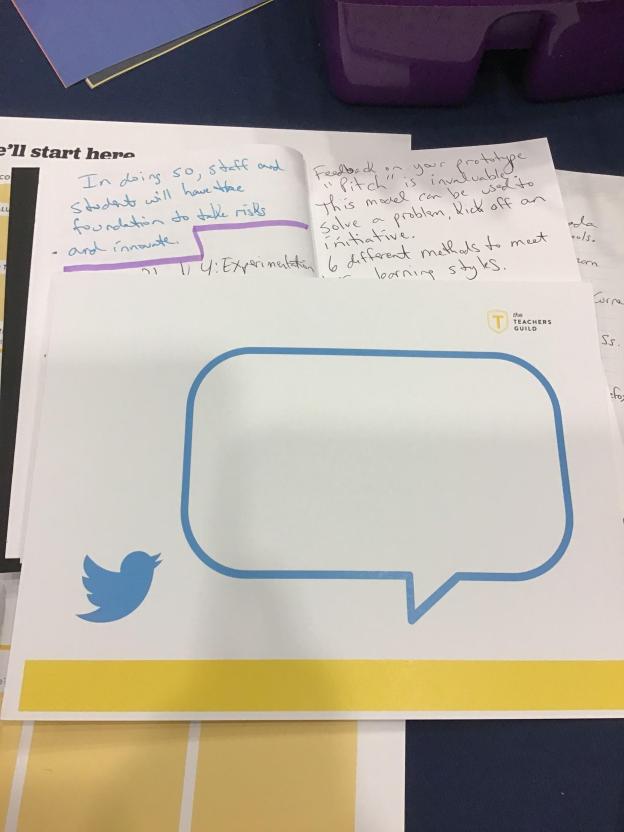 e'll start here
In doing so, staff and
student will have the
foundation to take risks
and innovate.
4: Experimentation
Feedback on your prototype
"Pitch" is invaluable.
This model can be used to
solve a problem, kick off an
initiative.
6 different methods to meet
learning styles.
ols.
Ss.
the
TEACHERS
GUILD
T